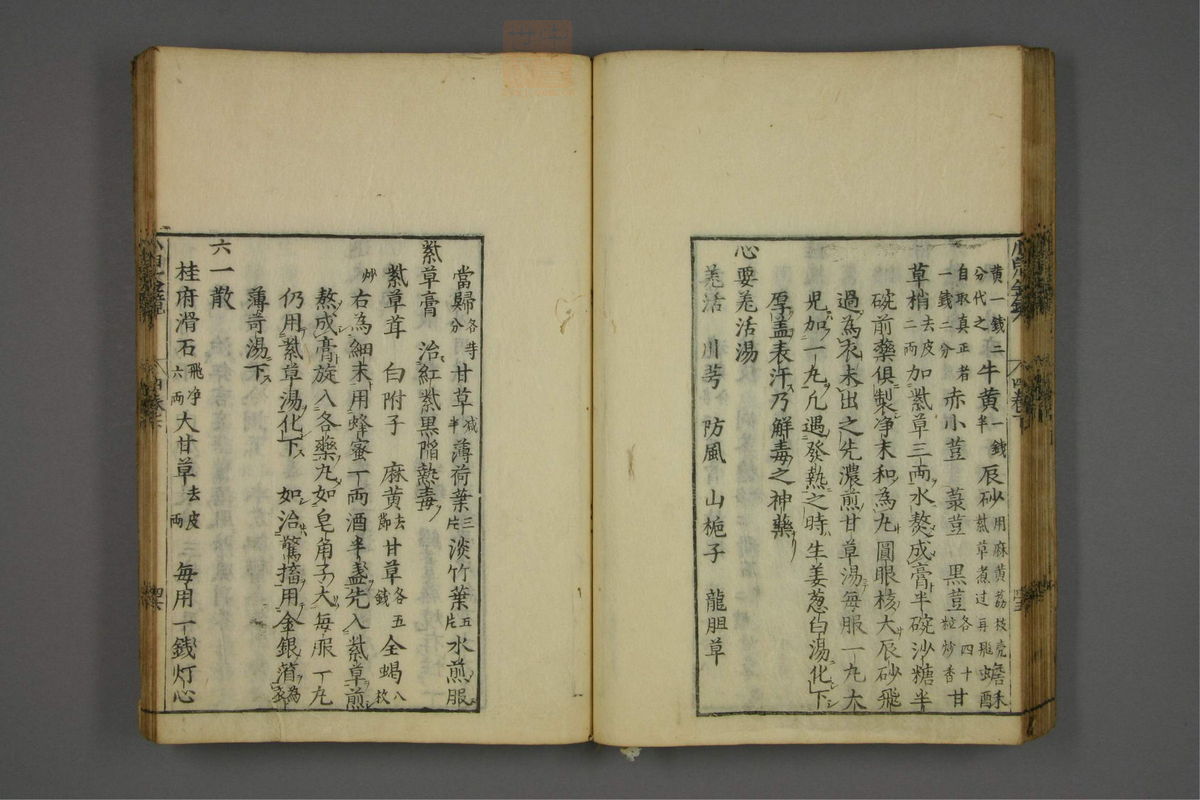 黄一錢二分代之牛黄一錢半辰砂用麻黄荔枝壳紫草煮过再飛蟾酥
自取真正者一錢二分赤小荳菉荳黒荳各四十粒炒香甘
草梢去皮二両加紫草三両水熬成膏半碗沙糖半
碗前藥俱製净末和為丸圓眼核大辰砂飛
過為衣未出之先濃煎甘草湯毎服一丸大
児加一丸凢遇發熱之時生姜葱白湯化下
厚盖表汗乃解毒之神藥
心要羗活湯
羗活 川芎 防風 山梔子 龍胆草
當歸各等分甘草减半薄荷葉三片淡竹葉五片水煎服
紫草膏 治紅紫黒陥熱毒
紫草茸 白附子 麻黄去節甘草各五錢全蝎八枚
炒右為細末用蜂蜜一両酒半盞先入紫草煎
熬成膏旋入各藥丸如皂角子大毎服一丸
仍用紫草湯化下 如治驚搐用金銀箔為衣
薄苛湯下
六一散
桂府滑石飛净六両大甘草去皮一両 毎用一錢灯心